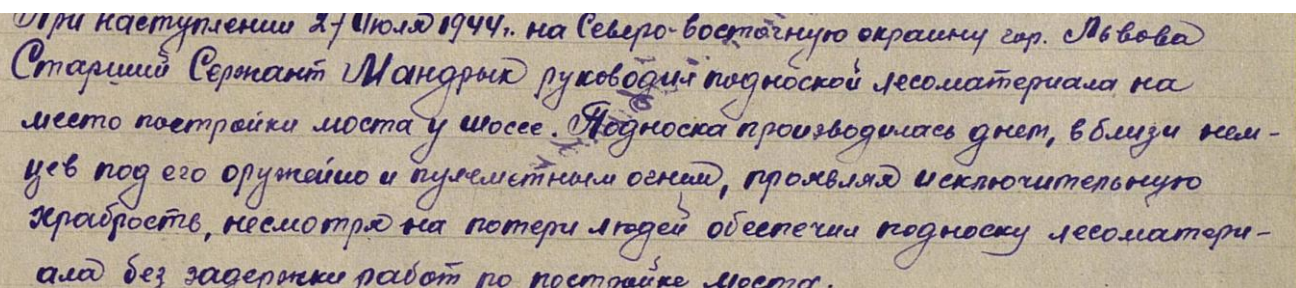 При наступлении 27 Июля 1944г. на Северо-восточную окраину гор. Львова
Старший Сержант Мандрык руководил подноской лесоматериала на
место постройки моста у шоссе. Подноска производилась днем, вблизи нем-
цев под его оружейно и пулеметным огнем, проявляя исключительную
храбрость, несмотря на потери людей обеспечил подноску лесоматери-
ала без задержки работ по постройке моста.